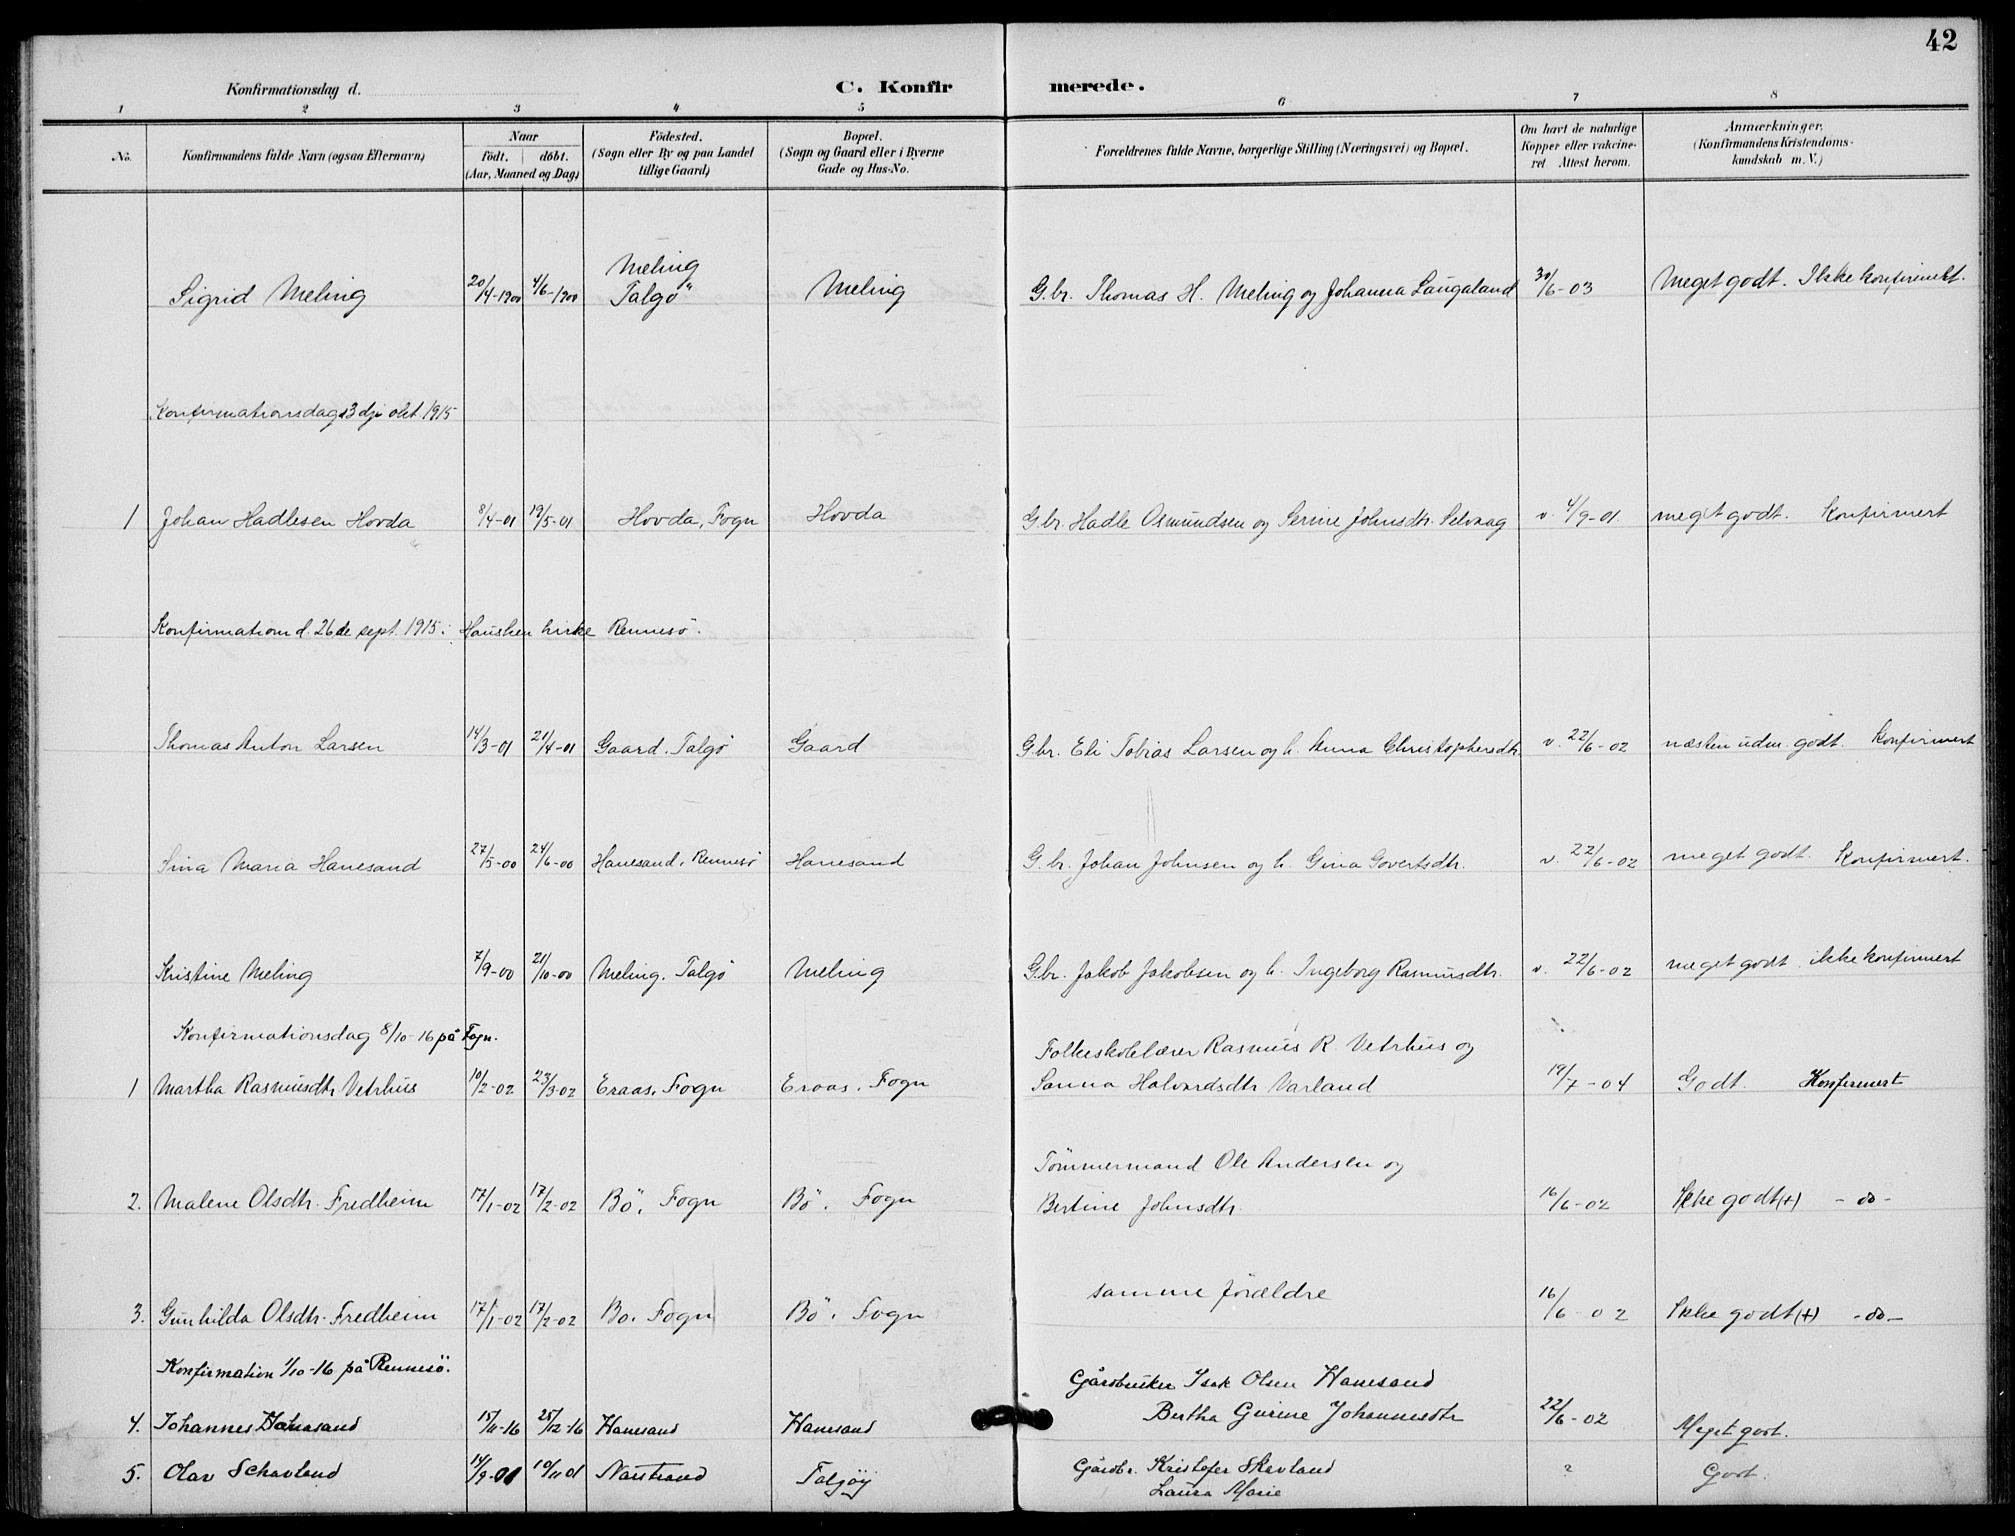 42
Konfirmationsdag d.
C. Konfirmerede.
1 2 3 4 5 6 7 8
No.
Konfirmandens fulde Navn (ogsaa Efternavn)
Naar
født. døbt.
(Aar, Maaned og Dag)
Fødested.
(Sogn eller By og paa Landet
tillige Gaard)
Bopæl.
(Sogn og Gaard eller i Byerne
Gade og Hus-No.
Forældrenes fulde Navne, borgerlige Stilling (Næringsvei) og Bopæl.
Om havt de naturlige
Kopper eller vakcine-
ret Attest herom.
Anmærkninger.
(Konfirmandens Kristendoms-
kundskab m. V.)
Sigrid Meling 20/4-1900 4/6-1900 Meling Talgö Meling G.br. Thomas H. Meling og Johanna Laugaland 30/6-03 Meget godt. Ikke konfirmert.
Konfirmationsdag 3dje okt. 1915
1 Johan Hadlesen Hovda 8/4-01 19/5-01 Hovda, Fogn Hovda G.br. Hadle Osmundsen og Serine Johnsdtr. Selvaag v. 4/9-01. meget godt. Konfirmert
Konfirmation d. 26de sept. 1915 i Hausken kirke Rennesö.
Thomas Anton Larsen 14/3-01 21/4-01 Gaard, Talgö Gaard G.br. Eli Tobias Larsen og h. Anna Christophersdtr. v. 22/6-02 næsten udm. godt. Konfirmert
Sina Maria Hanesand 27/5-00 24/6-00 Hanesand, Rennesö Hanesand G.br. Johan Johnsen og h. Gina Govertsdtr. v. 22/6-02 meget godt. Konfirmert.
Kristine Meling 7/9-00 21/10-00 Meling, Talgö Meling G.br. Jakob Jakobsen og h. Ingeborg Rasmusdtr. v. 22/6-02 meget godt. ikke konfirmert
Konfirmationsdag 8/10-16 på Fogn.
Folkeskolelærer Rasmus R. Vetrhus og
1 Martha Rasmusdtr. Vetrhus 10/2-02 23/3-02 Eraas, Fogn Eraas, Fogn Sanna Halvardsdtr Varland 19/7-04 Godt. Konfirmert
Tömmermand Ole Andersen og
2. Malene Olsdtr. Fredheim 17/1-02 17/2-02 Bö, Fogn Bö, Fogn Bertine Johnsdtr. 16/6-02 Ikke godt(+) -do-
3. Gunhilda Olsdtr. Fredheim 17/1-02 17/2-02 Bö, Fogn Bö, Fogn samme forældre 16/6 02 Ikke godt(+) -do-
Konfirmation 1/10-16 på Rennesö.
Gårdbruker Isak Olsen Hanesand
4. Johannes Hanasand 15/11-16 25/12-16 Hanesand Hanesand Bertha Gurine Johannesdtr 22/6-02 Meget godt.
5. Olav Schavland 14/9-01 10/11 01 Narstrand Talgöy Gårdbr. Kristofer Skavland ? Godt.
Laura Marie